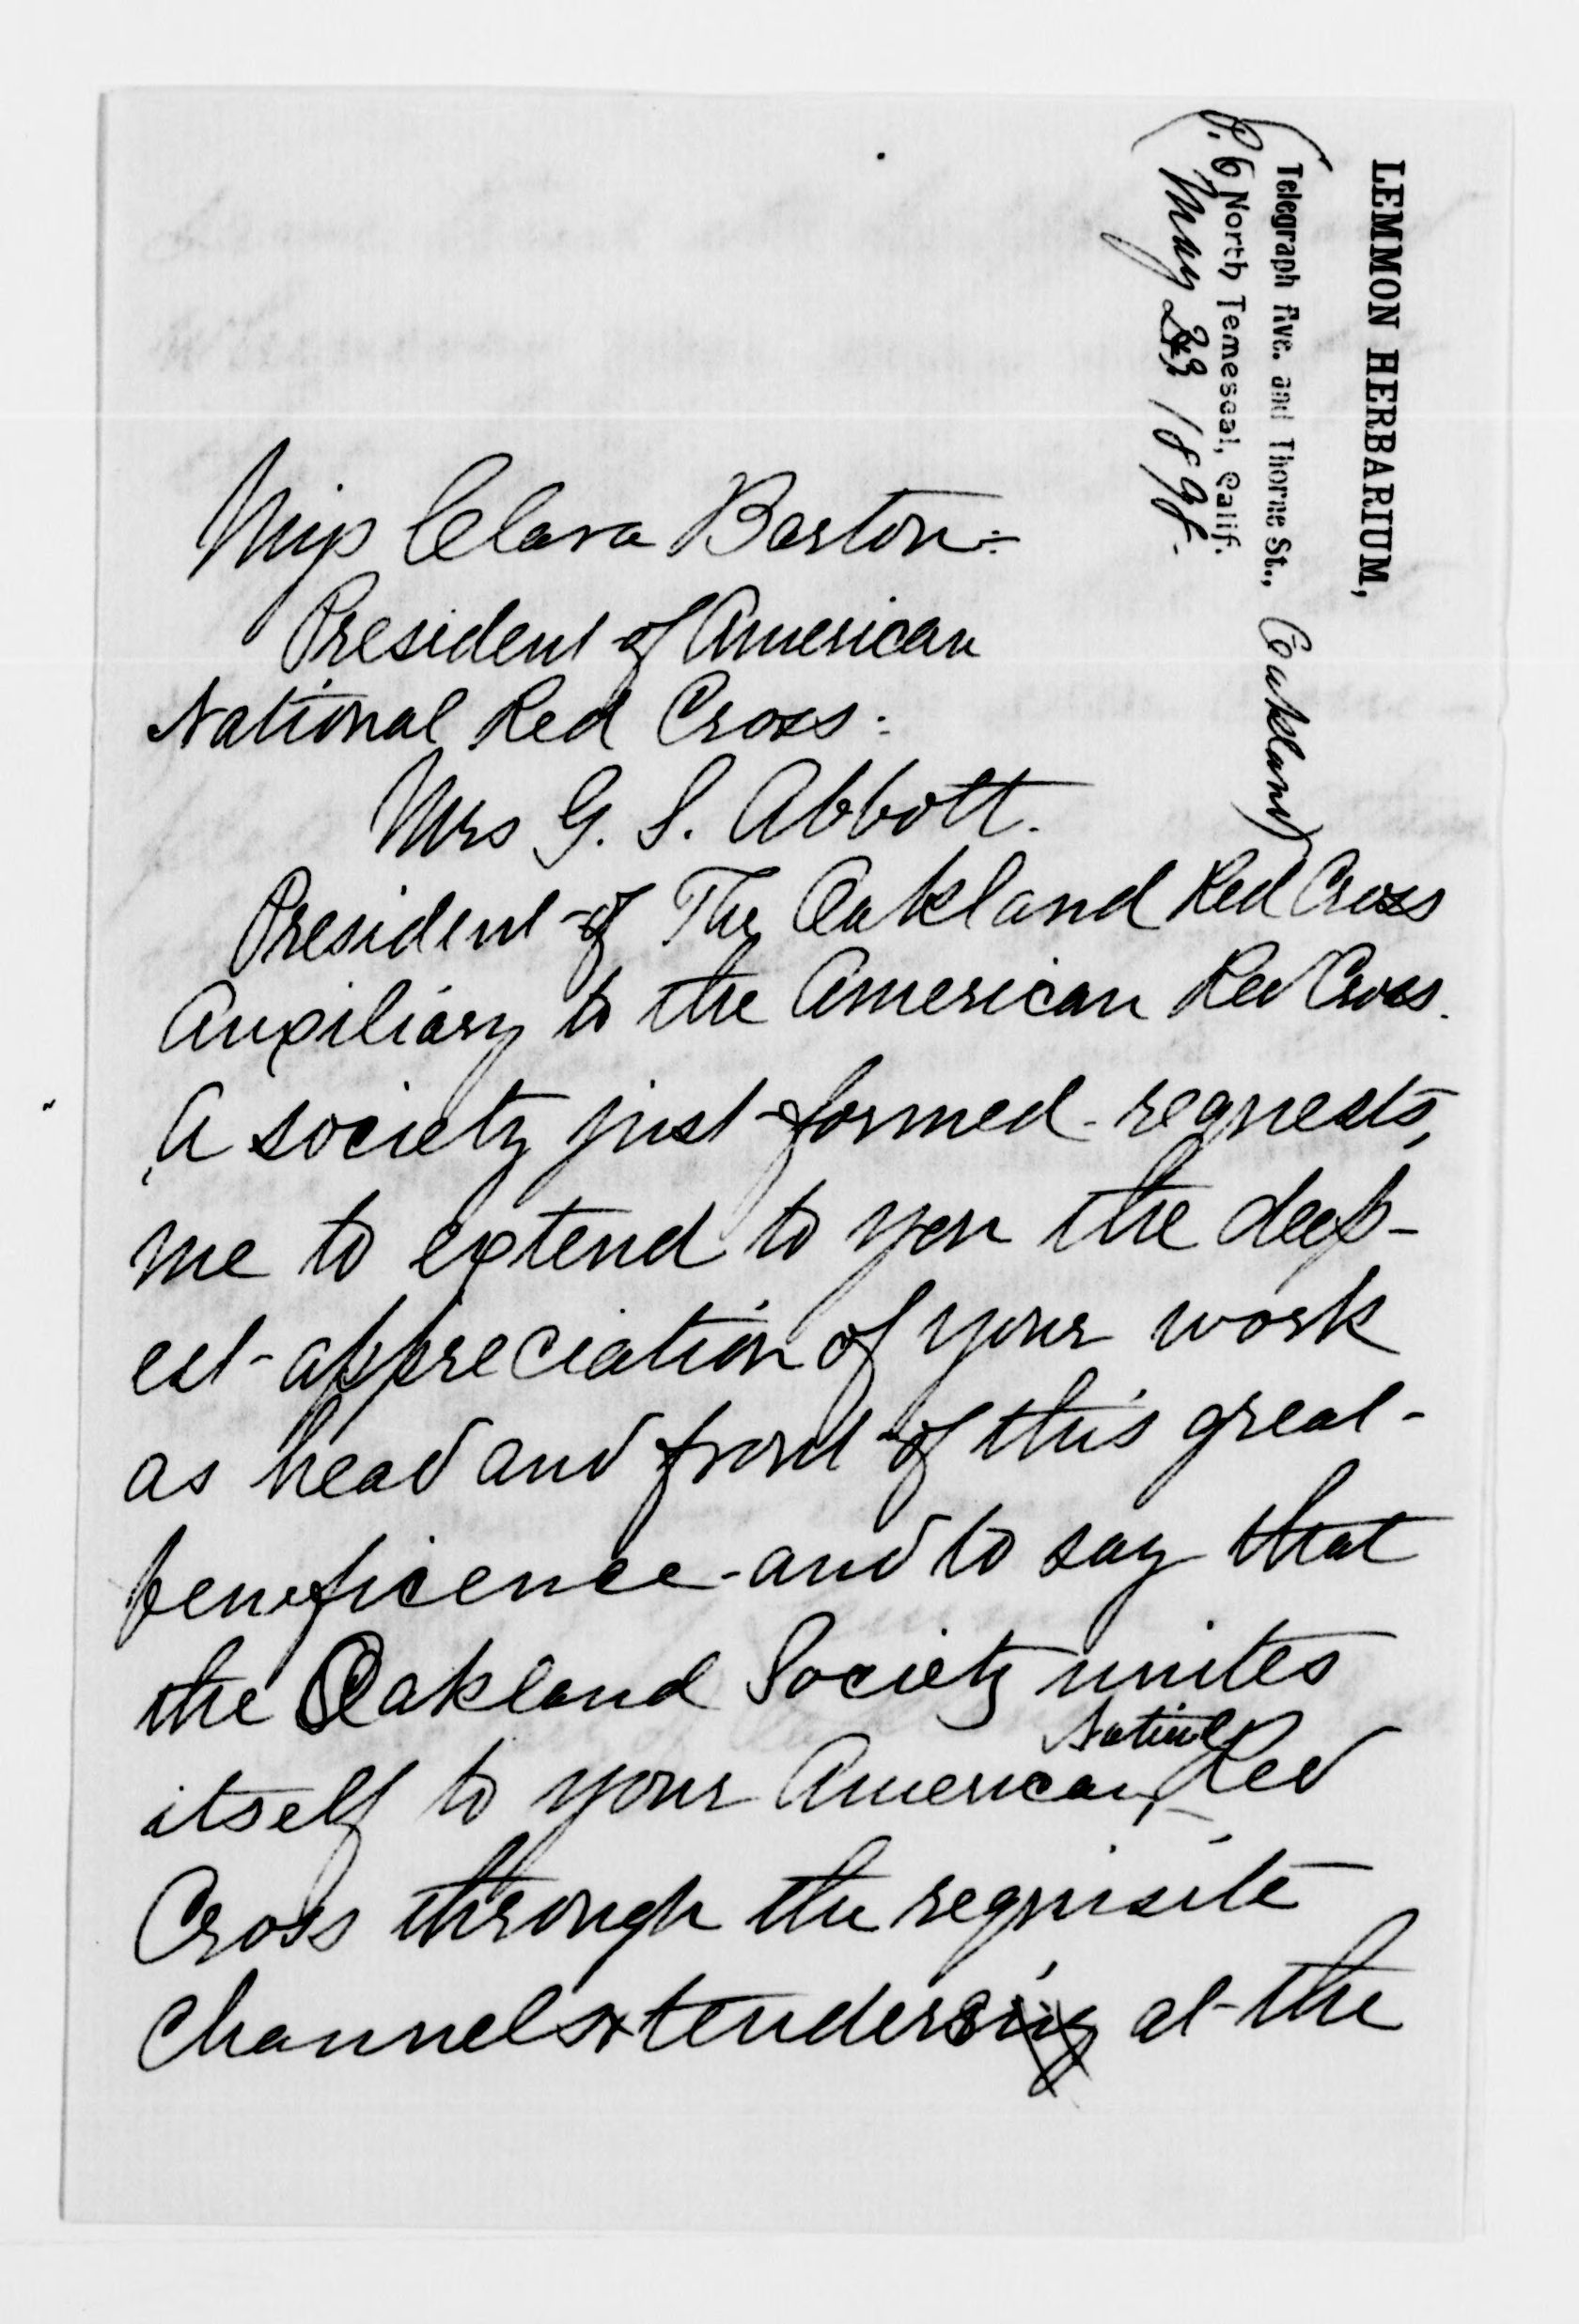 LEMMON HERBARIUM,
Telegraph Ave. and Thorne St., Oakland
P. O North Temescal, Calif.
May 23 1898.
Miss Clara Barton:
President of American
National Red Cross:
Mrs G. S. Abbott.
President of The Oakland Red Cross
Auxiliary to the American Red Cross.
A society just formed - requests,
me to extend to you the deep-
est appreciation of your work
as head and front of this great
beneficence - and to say that
the Oakland Society unites
Nationl
itself to your American Red
Cross through the requisite
channels & tendersing at the